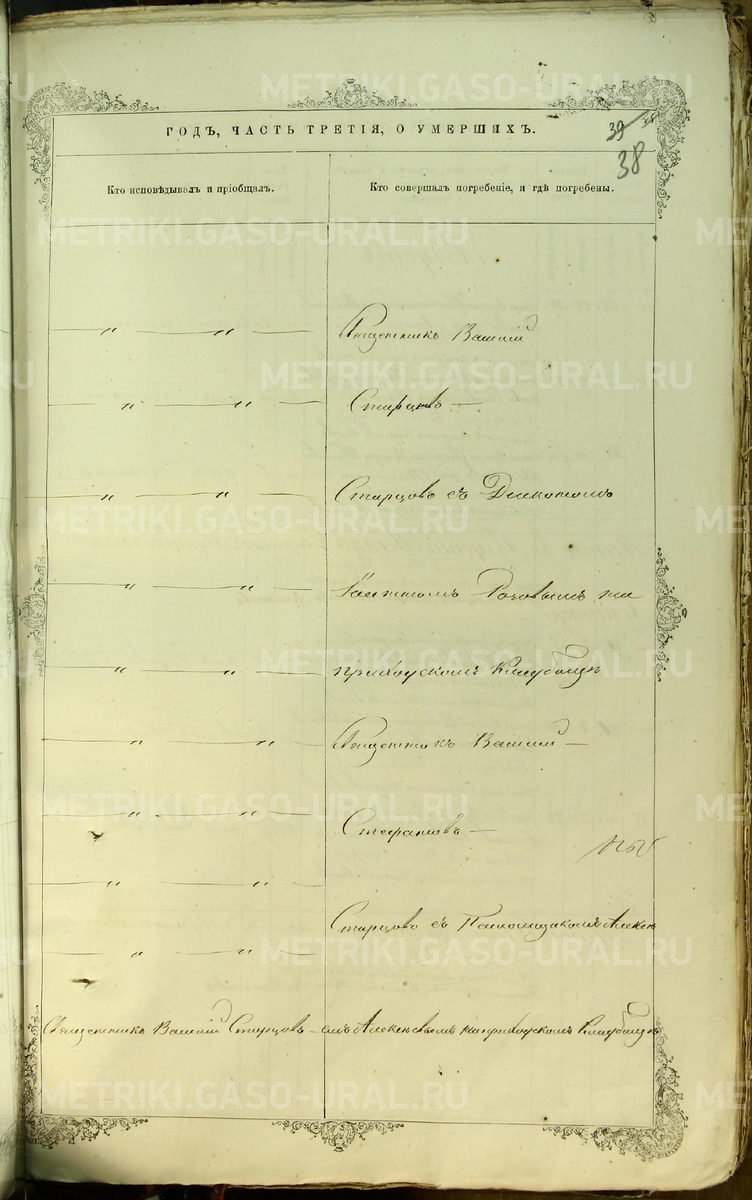 ГОДЪ, ЧАСТЬ ТРЕТІЯ, О УМЕРШИХЪ.
39
38
Кто исповѣдывалъ и пріобщалъ.
Кто совершалъ погребеніе, и гдѣ погребены.
" " Священникъ Василій
" " Старцовъ —
" " Старцовъ съ Дьякономъ
" " Роговымъ на
" " приходскомъ кладбищѣ
" " Священникъ Василій —
" " Стефановъ —
" "
Старцовъ съ Псаломщикомъ Алексѣ
" "
Священникъ Василій Старцовъ —
емъ Алексѣевымъ на приходскомъ кладбищѣ
METRIKI.GASO-URAL.RU